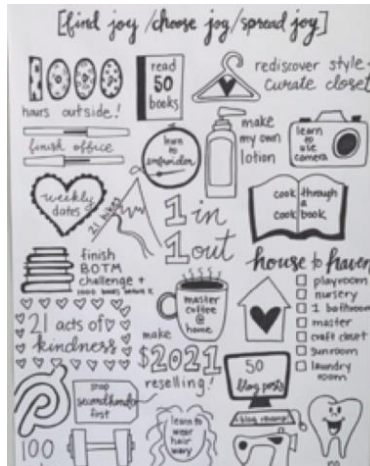 [find joy/choose joy/spread joy]
1000
hours outside!
read
50
books
rediscover style +
curate closet
finish office
learn to
embroider
make
my own
lotion
learn
to use
camera
weekly
dates
21 hikes
1 in
1 out
cook through
a
cook book
finish
BOTM
challenge +
1000 books before K
master
coffee
@
home
house to haven
playroom
nursery
1 bathroom
master
craft closet
sunroom
laundry
room
21 acts of
kindness
make
$2021
reselling!
50
blog posts
blog revamp!
shop
secondhand
first
learn to
wear
hair
wavy
100